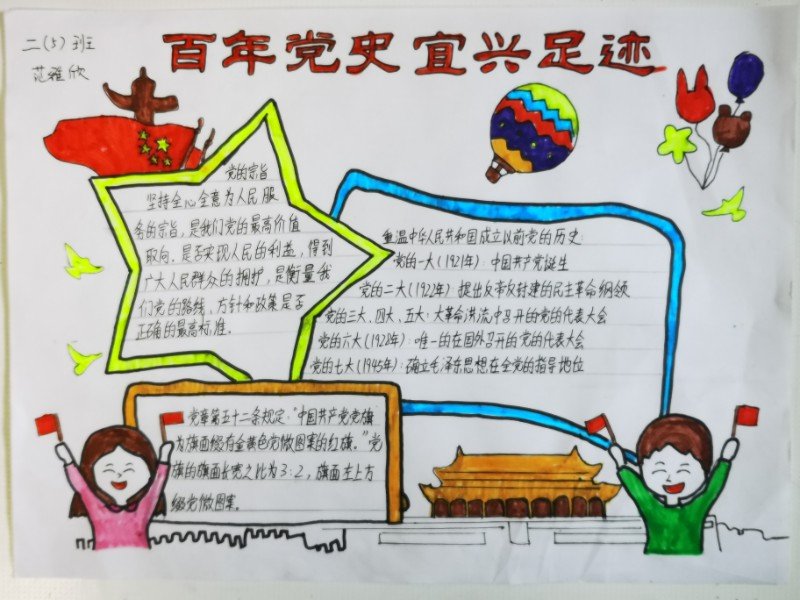 百年党史宜兴足迹
二(5)班
范雅欣
党的宗旨
坚持全心全意为人民服
务的宗旨,是我们党的最高价值
取向。是否实现人民的利益,得到
广大人民群众的拥护,是衡量我
们党的路线、方针和政策是否
正确的最高标准。
重温中华人民共和国成立以前党的历史:
党的一大(1921年):中国共产党诞生
党的二大(1922年):提出反帝反封建的民主革命纲领
党的三大、四大、五大:大革命洪流中召开的党的代表大会
党的六大(1928年):唯一的在国外召开的党的代表大会
党的七大(1945年):确立毛泽东思想在全党的指导地位
党章第五十二条规定:“中国共产党党旗
为旗面缀有金黄色党徽图案的红旗。”党
旗的旗面长宽之比为3:2,旗面左上方
缀党徽图案。